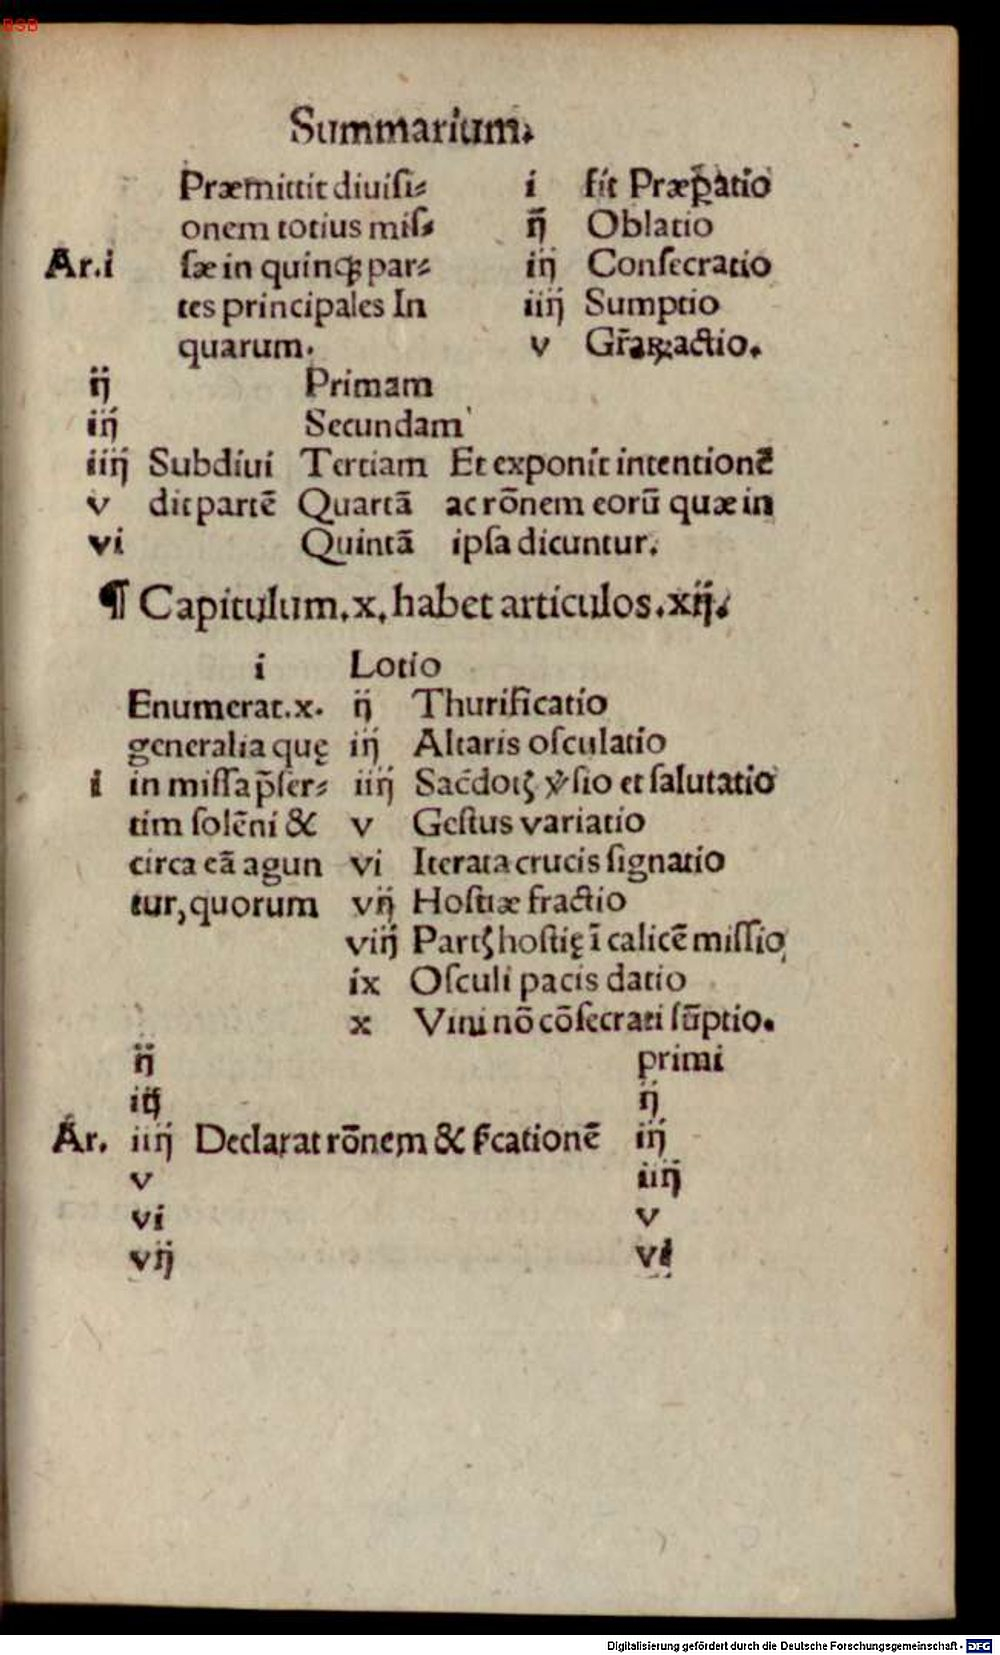 BSB
Summarium.
Præmittit diuisi- i fit Præp̱atio
onem totius mis- ij Oblatio
Ar.i sæ in quinqꝫ par- iij Consecratio
tes principales In iiij Sumptio
quarum. v Gr̃aꝝ actio.
ij Primam
iij Secundam
iiij Subdiui Tertiam Et exponit intentionẽ
v dit partẽ Quartã ac rõnem eorũ quæ in
vi Quintã ipsa dicuntur.
¶ Capitulum.x. habet articulos.xij.
i Lotio
Enumerat.x. ij Thurificatio
generalia quę iij Altaris osculatio
i in missa p̃ser- iiij Sac̃dotꝭ ỽsio et salutatio
tim solẽni & v Gestus variatio
circa eã agun vi Iterata crucis signatio
tur, quorum vij Hostiæ fractio
viij Partꝭ hostię ĩ calicẽ missio
ix Osculi pacis datio
x Vini nõ cõsecrati sũptio.
ij primi
iij ij
Ar. iiij Declarat rõnem & s̃cationẽ iij
v iiij
vi v
vij vi
Digitalisierung gefördert durch die Deutsche Forschungsgemeinschaft - DFG